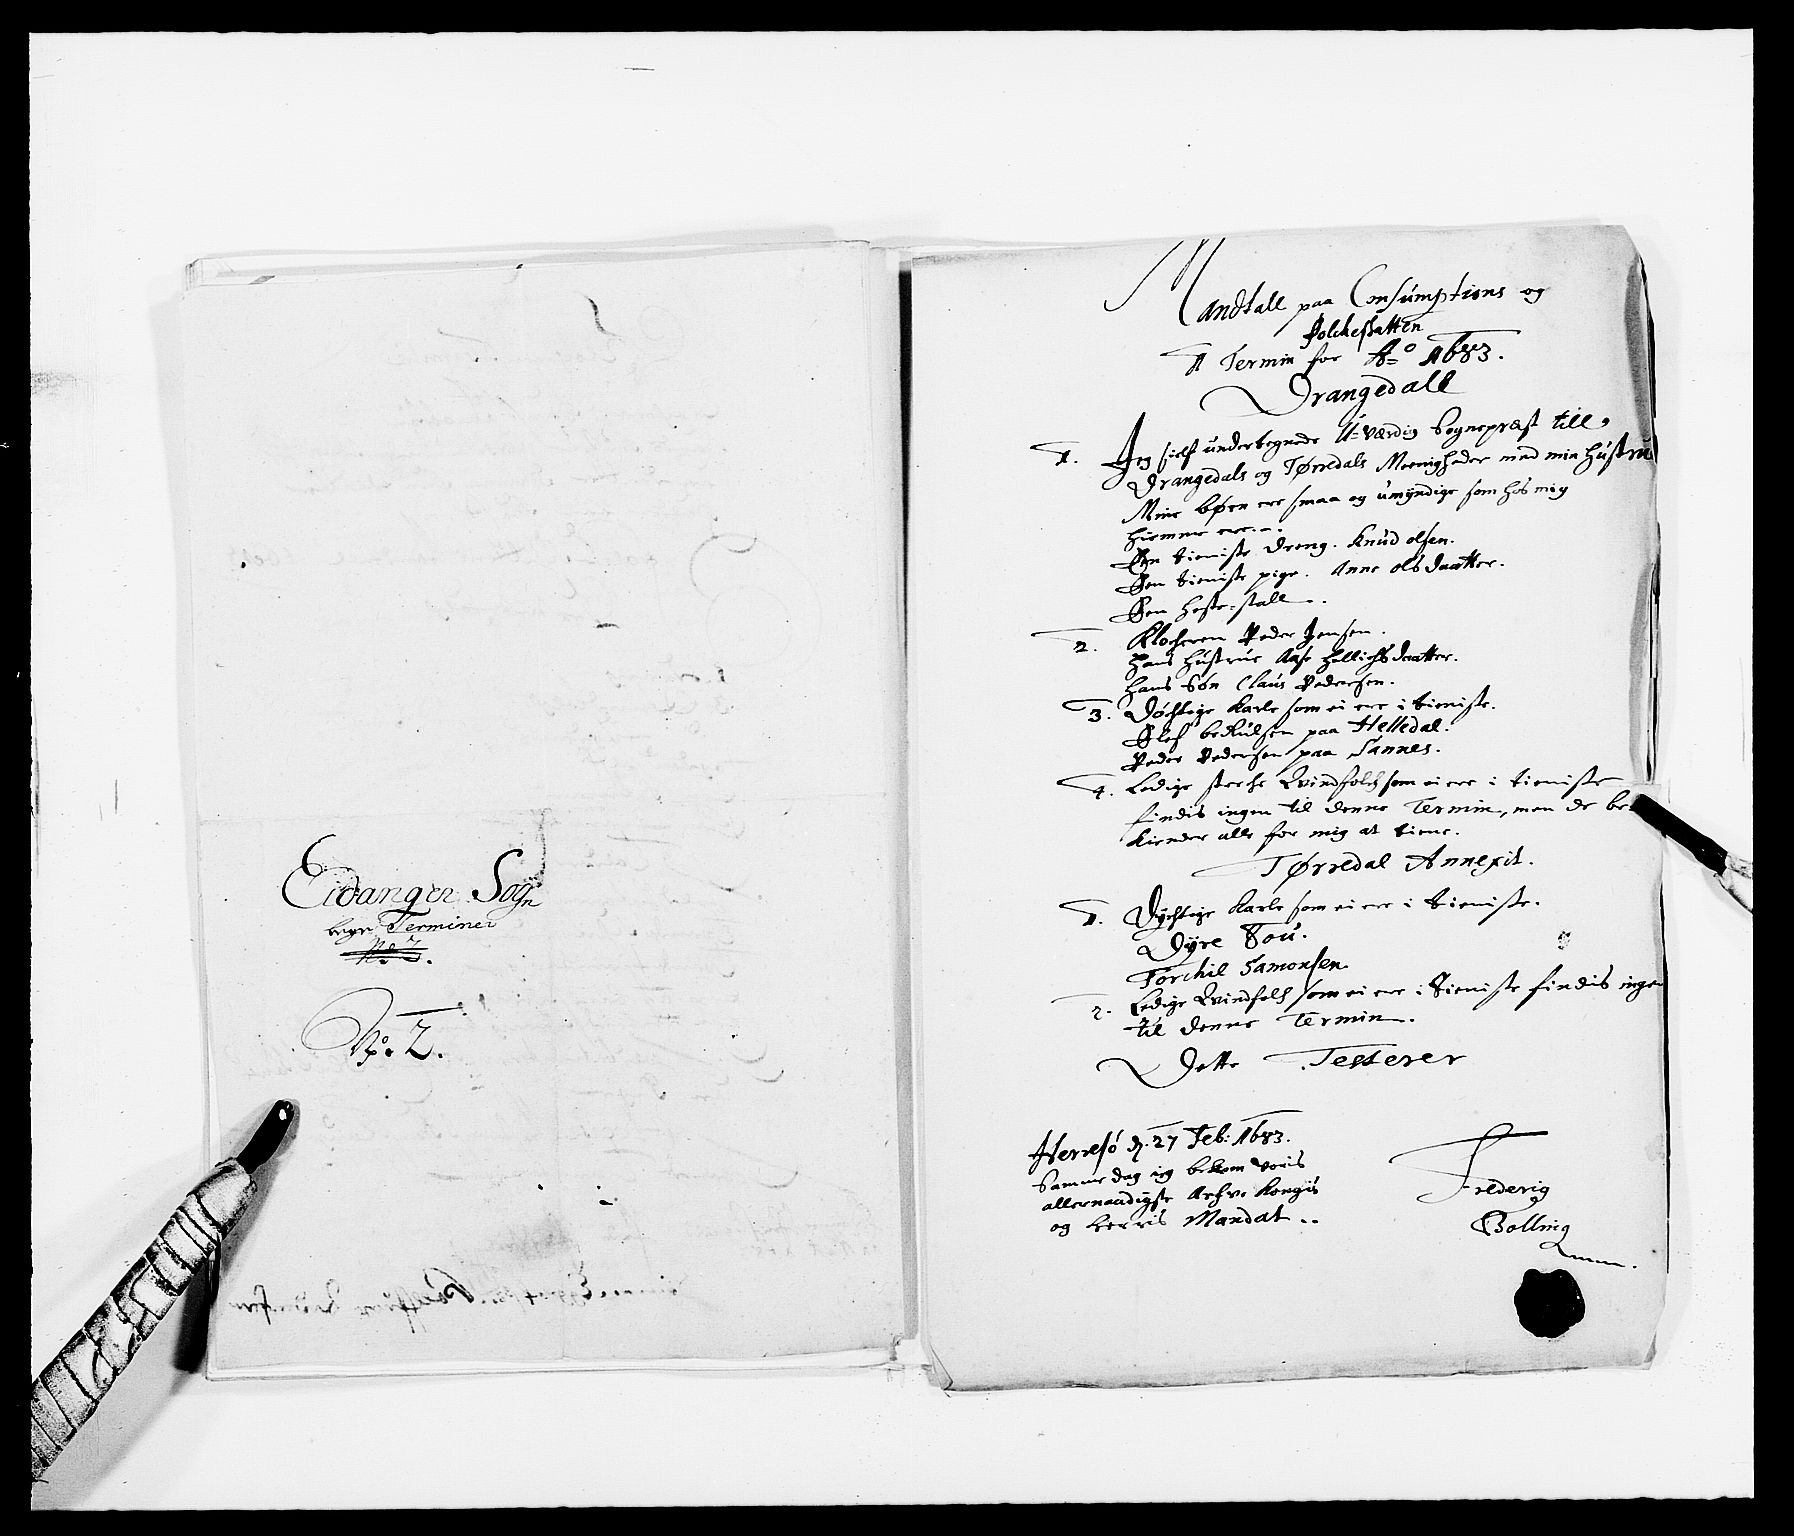 Eidanger Sogn
begge Terminer
No 2.
No. 2.
Mandtall paa Consumptions og
Folckeskatten
1 Termin for Ao 1683.
Drangedall
1. Jeg sielf undertegnede U-værdig Sognepræst till
Drangedals og Tørredals Meenigheder med min Hustru
Mine børn ere smaa og umÿndige som hos mig
hiemme ere.
Een tieniste dreng. Knud olsen.
Een tieniste pige. Anne olsdaatter.
Een heste-stall.
2. Klockeren Peder Jensen.
Hans Hustrue Aase Hellichsdaatter.
Hans Søn Claus Pedersen.
3. Døchtige Karle som ei ere i tieniste.
Olef paa Helledal.
Peder Pedersen paa Sannes.
4. Ledige sterche Qvindfolch som ei ere i tieniste
findis ingen til denne Termin, men de be
kiender alle for mig at tiene.
Tørredal Annexit.
1. Dÿchtige Karle som ei ere i tieniste.
Dÿre Bou.
Torchil Samonsen.
2. Ledige Qvindfolch som ei ere i tieniste findis ingen
til denne Termin.
Dette Testerer
Herresø d. 27 Feb: 1683.
Samme dag ieg bekom voris
allernaadigste Arfve Kongis
og herris Mandat..
Frederig
Bolling